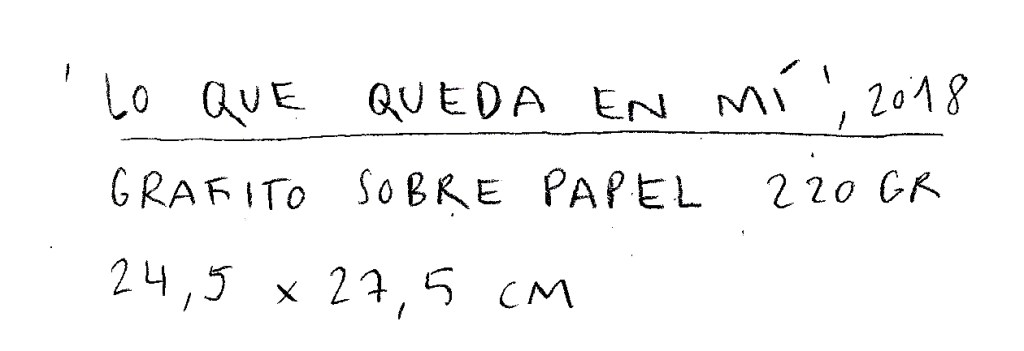 'LO QUE QUEDA EN MÍ', 2018
GRAFITO SOBRE PAPEL 220 GR
24,5 x 27,5 CM